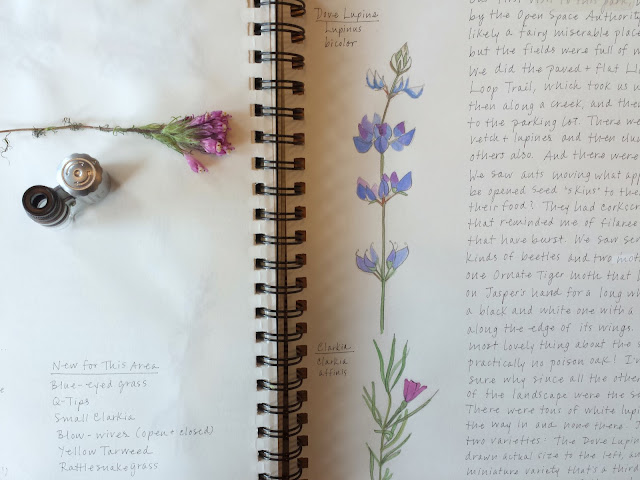 New for This Area
Blue-eyed grass
Q-Tips
Small Clarkia
Blow-wives (open + closed)
Yellow Tarweed
Rattlesnakegrass
Dove Lupine
Lupinus
bicolor
Clarkia
Clarkia
affinis
by the Open Space Authority
likely a fairy miserable place
but the fields were full of
We did the paved + flat
Loop Trail, which took us
then along a creek, and the
to the parking lot. There we
vetch + lupines and then
others also. And there were
We saw ants moving what app
be opened seed "skins" to the
their food? They had corkscr
that reminded me of filaree
that have burst. We saw se
kinds of beetles and two mot
one Ornate Tiger moth that
on Jasper's hand for a long w
a black and white one with a
along the edge of its wings.
most lovely thing about the s
practically no poison oak! I'
sure why since all the othe
of the landscape were the sa
There were tons of white lup
the way in and none there.
two varieties. The Dove Lupi
drawn actual size to the left, an
miniature variety that's a third